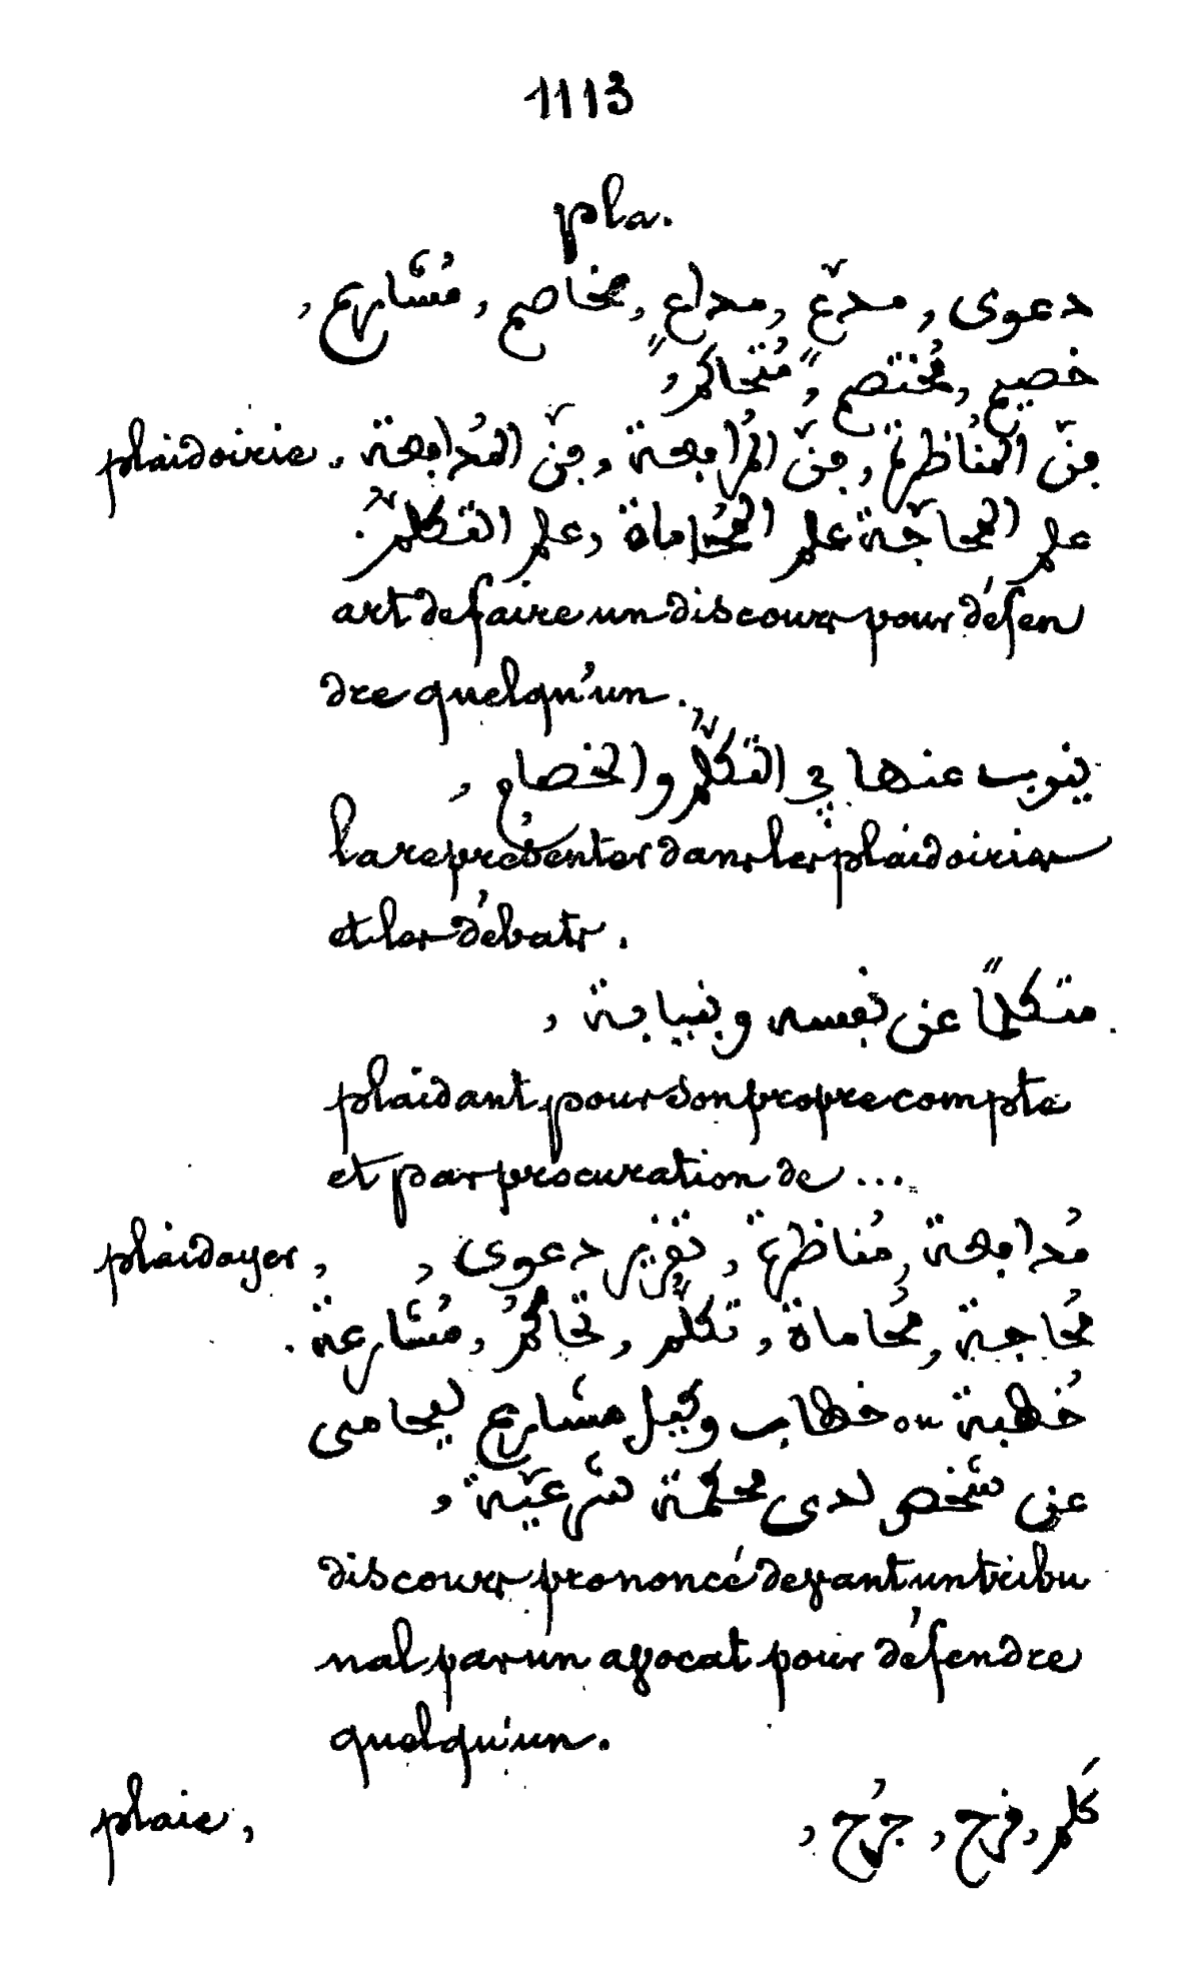 1113
pla.
دعوى, مدّع, مداع, مخاصم, مُشارع,
خصيم, مُختصم, مُتحاكم,
plaidoirie. فنّ المُناظرة, فنّ المُرافعة, فنّ المُدافعة,
علم المحاجّة علم المُحاماة, علم التكلّم.
art de faire un discours pour défen
dre quelqu'un.
ينوب عنها في التكلّم والخصام,
la représenter dans les plaidoiries
et les débats.
متكلمًا عن نفسه وبنيابة,
plaidant pour son propre compte
et par procuration de ...
plaidoyer, مُدافعة, مُناظرة, تقرير دعوى,
مُحاجة, مُحاماة, تكلّم, تحاكُم, مُشارعة.
خُطبة ou خطاب وكيل مشارع ليحامى
عن شخص لدى محكمة شرعيّة,
discours prononcé devant un tribu
nal par un avocat pour défendre
quelqu'un.
plaie, كَلم, قرح, جُرح,